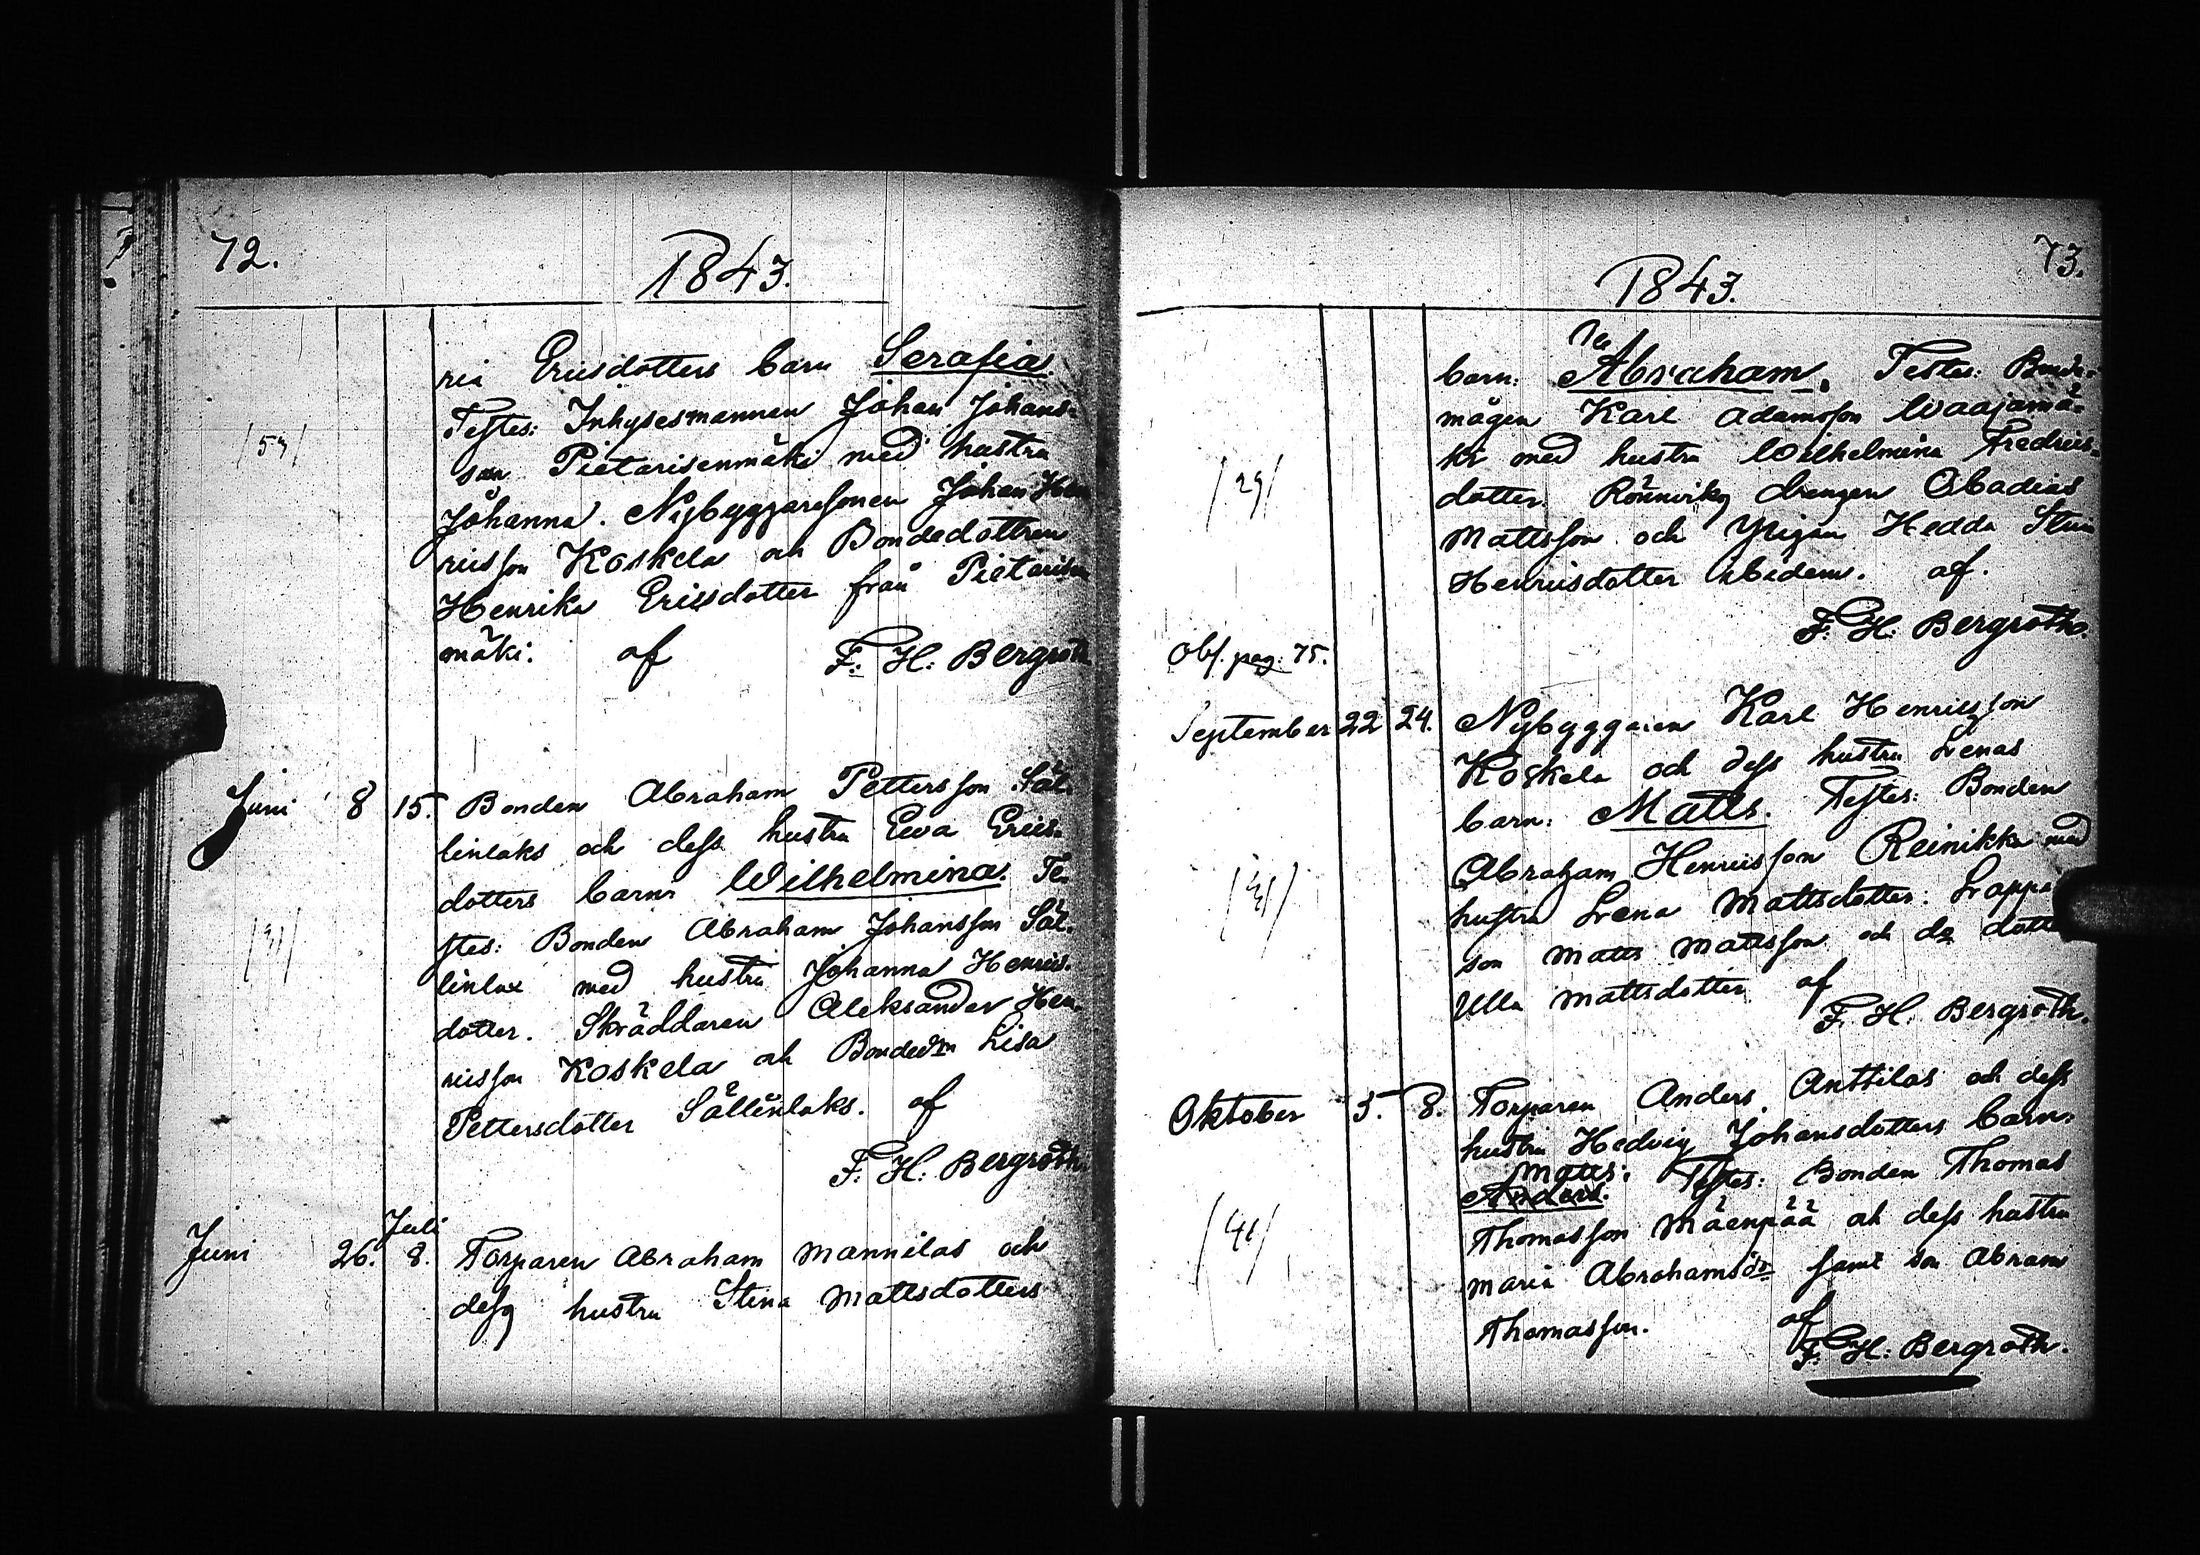 72.
1843.
ria Ericsdotters barn Serafia.
Testes: Inhysesmannen Johan Johans-
son Pietarisenmäki med hustru
/53/
Johanna. Nybyggaresonen Johan Hen
ricsson Koskela och Bondedottren
Henrika Ericsdotter från Pietarisen
mäki. af F. H. Bergroth
Juni 8 15. Bonden Abraham Pettersson Säl-
linlaks och dess hustru Ewa Erics-
dotters barn Wilhelmina. Te-
stes: Bonden Abraham Johansson Säl-
/31/
linlax med hustru Johanna Henrics-
dotter. Skräddaren Aleksander Hen-
ricsson Koskela och Bondedtn Lisa
Pettersdotter Sällinlaks. af
F. H. Bergroth.
Juli
Juni 26. 8. Torparen Abraham Mannilas och
dess hustru Stina Mattsdotters
73.
1843.
barn: Abraham. Testes: Bonde-
mågen Karl Adamsson Waajamä-
ki med hustru Wilhelmina Fredrics-
/29/
dotter. drengen Obadias
Mattsson och Pigan Hedda Stina
Henricsdotter ibidem. af.
F. H. Bergroth.
Obs. pag. 75.
September 22 24. Nybyggaren Karl Henricsson
Koskela och dess hustru Lenas
barn: Matts. Testes: Bonden
Abraham Henricsson Reinikka med
/31/
hustru Lena Mattsdotter. Lappe
son Matts Mattsson och do dotter
Ulla Mattsdotter af
F. H. Bergroth.
Oktober 5. 8. Torparen Anders Anttilas och dess
hustru Hedvig Johansdotters barn:
Matts.
Anders. Testes: Bonden Thomas
/41/
Thomasson Mäenpää och dess hustru
Maria Abrahamsdr samt son Abram
Thomasson. af
F. H. Bergroth.